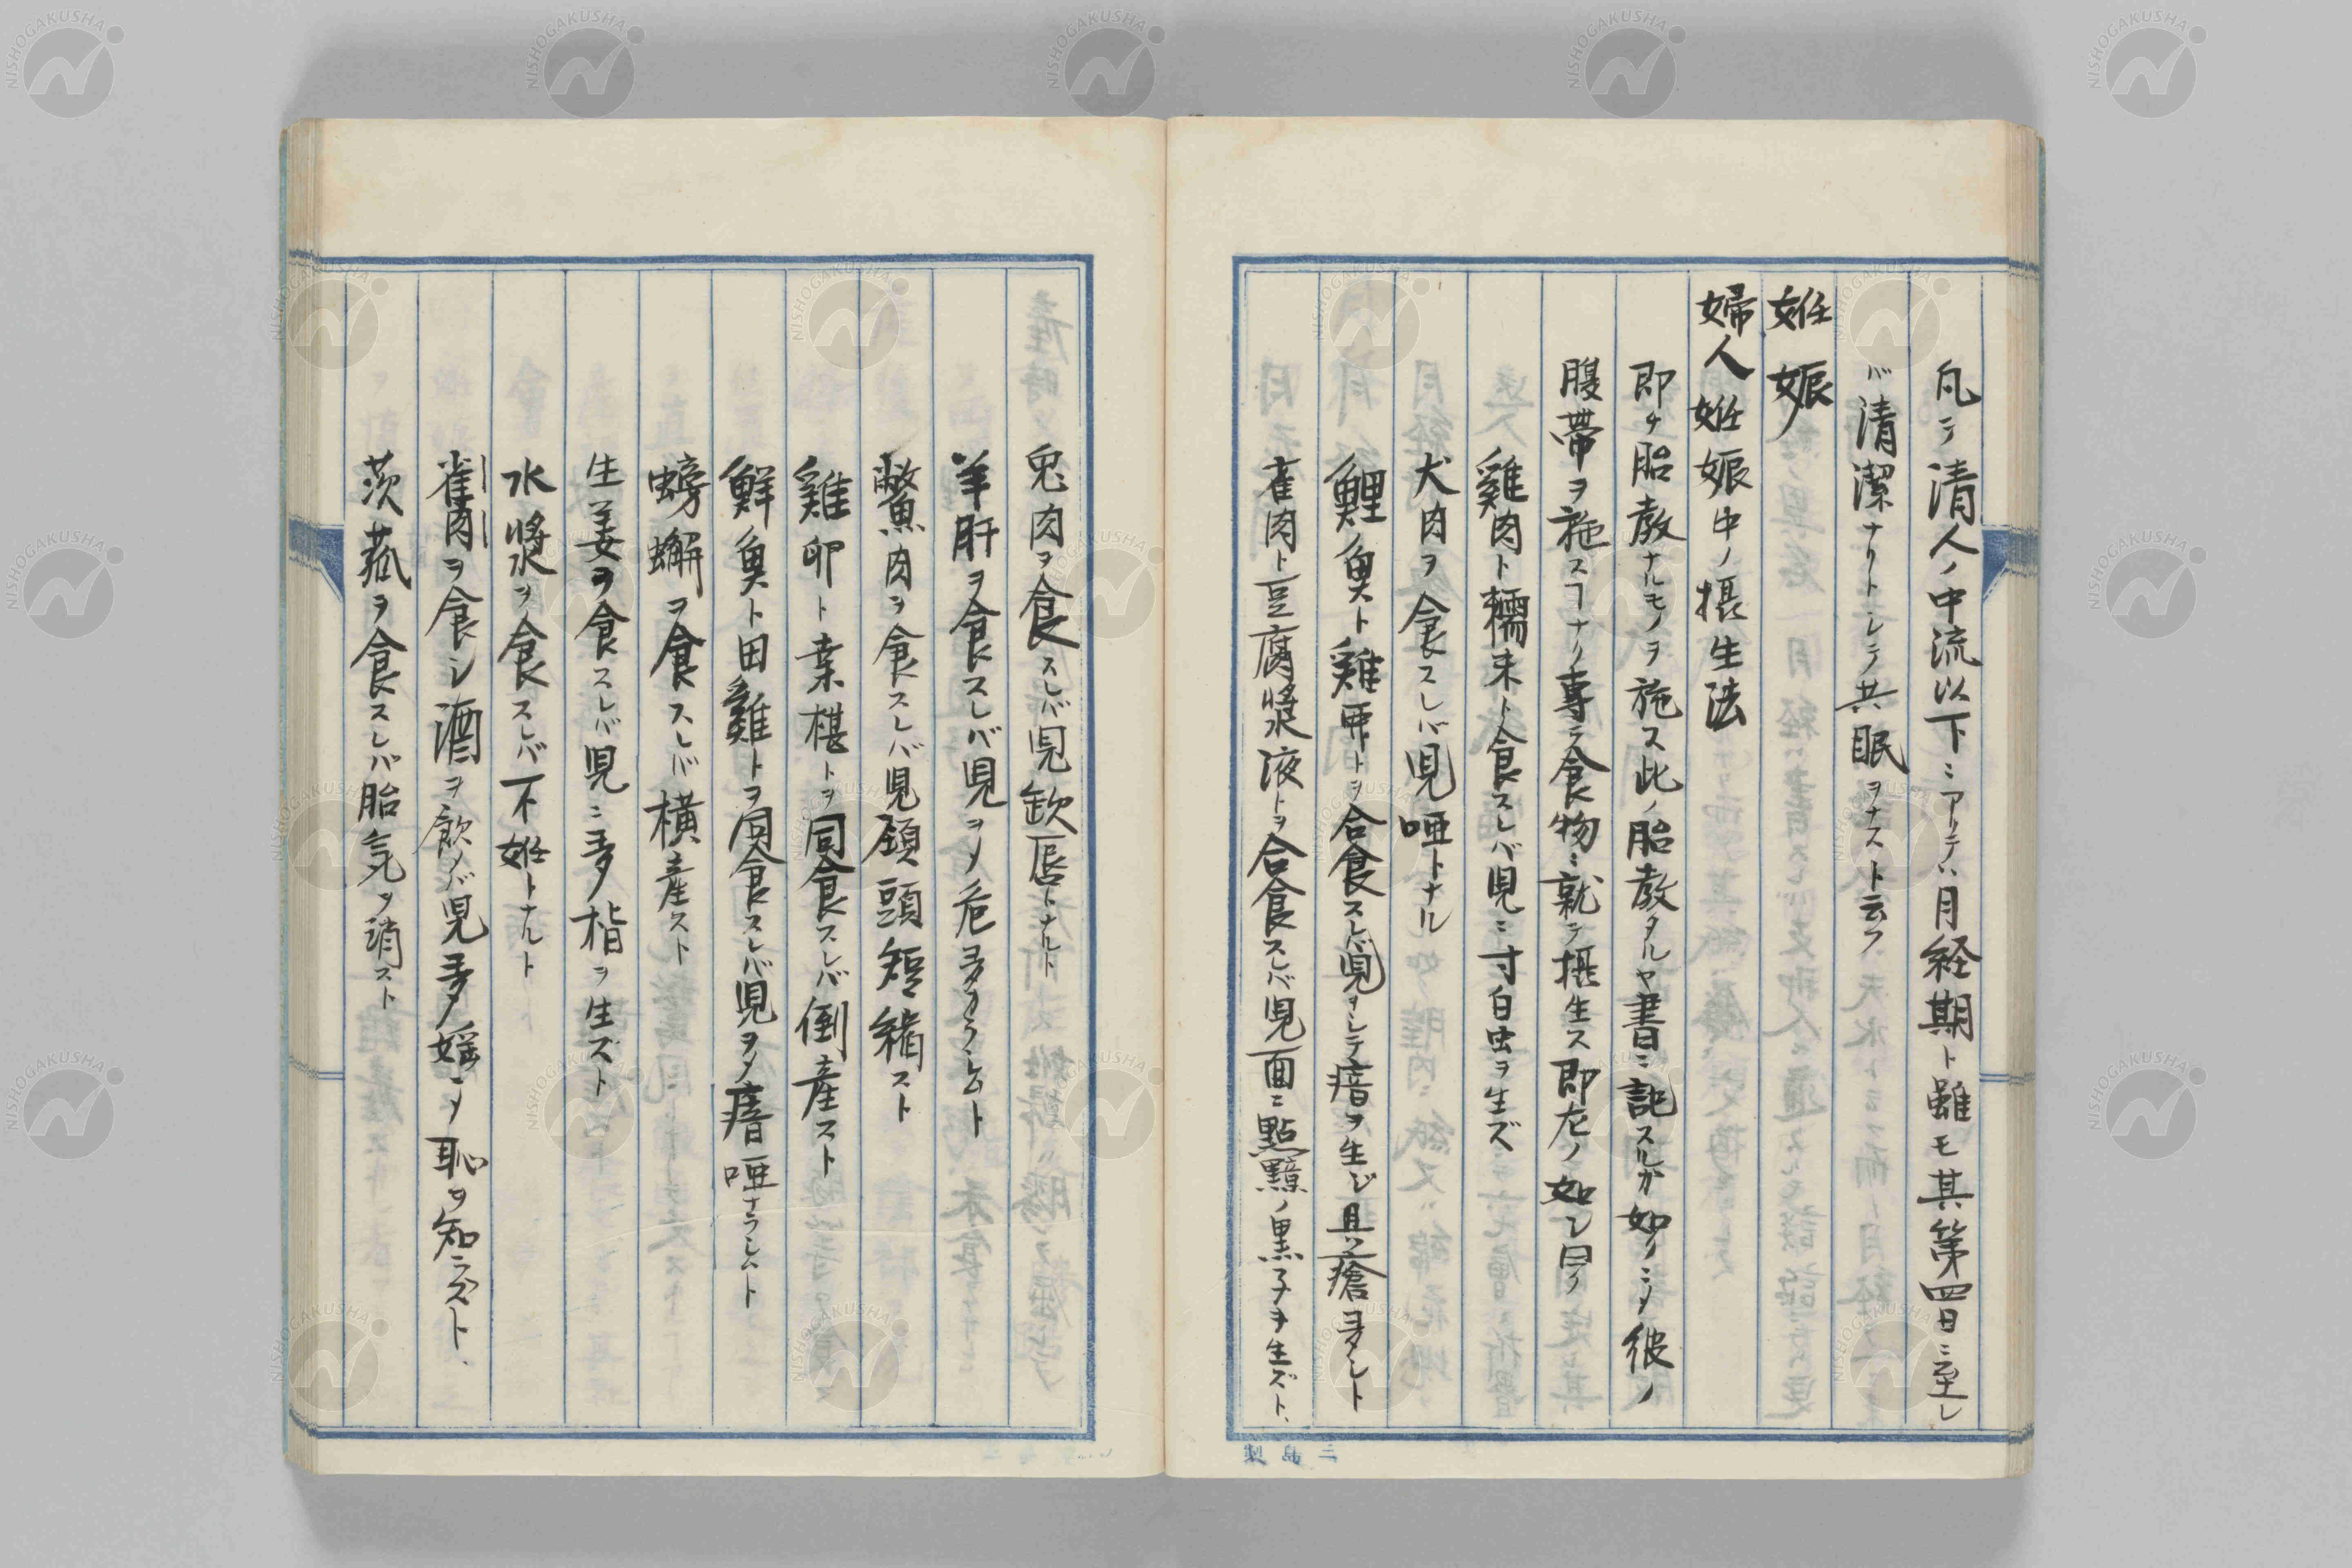 凡テ清人ノ中流以下ニアリテハ月経期ト雖モ其第四日ニ至レ
バ清潔ナリトシテ共眠ヲナスト云フ
妊娠
婦人妊娠中ノ摂生法
即チ胎教ナルモノヲ施ス此ノ胎教タルヤ書ニ記スルカ如クニシテ彼ノ
腹帯ヲ施スヿナク専ラ食物ニ就テ摂生ス即左ノ如シ曰ク
雞肉ト糯米ト食スレバ児ニ寸白虫ヲ生ズ
犬肉ヲ食スレバ児唖トナル
鯉ノ魚ト雞卵トヲ合食スレバ児ヲシテ瘖ヲ生ジ且ツ瘡多シト
雀肉ト豆腐漿液トヲ合食スレバ児面ニ點黯ノ黒子ヲ生ズト、
兎肉ヲ食スレバ児欽唇トナルト
羊肝ヲ食スレバ児ヲメ危多カラシムト
鱉魚肉ヲ食スレバ児頭短縮スト
雞卵ト桑椹トヲ同食スレバ倒産スト
鮮魚ト田雞トヲ同食スレバ児ヲメ瘖唖ナラシムト
螃蠏ヲ食スレバ横産スト
生姜ヲ食スレバ児ニ多指ヲ生ズト
水漿ヲ食スレバ不妊トナルト
雀肉ヲ食シ酒ヲ飲メバ児多婬ニメ恥ヲ知ラズト、
茨菰ヲ食スレバ胎気ヲ消スト
三島製
NISHOGAKUSHA